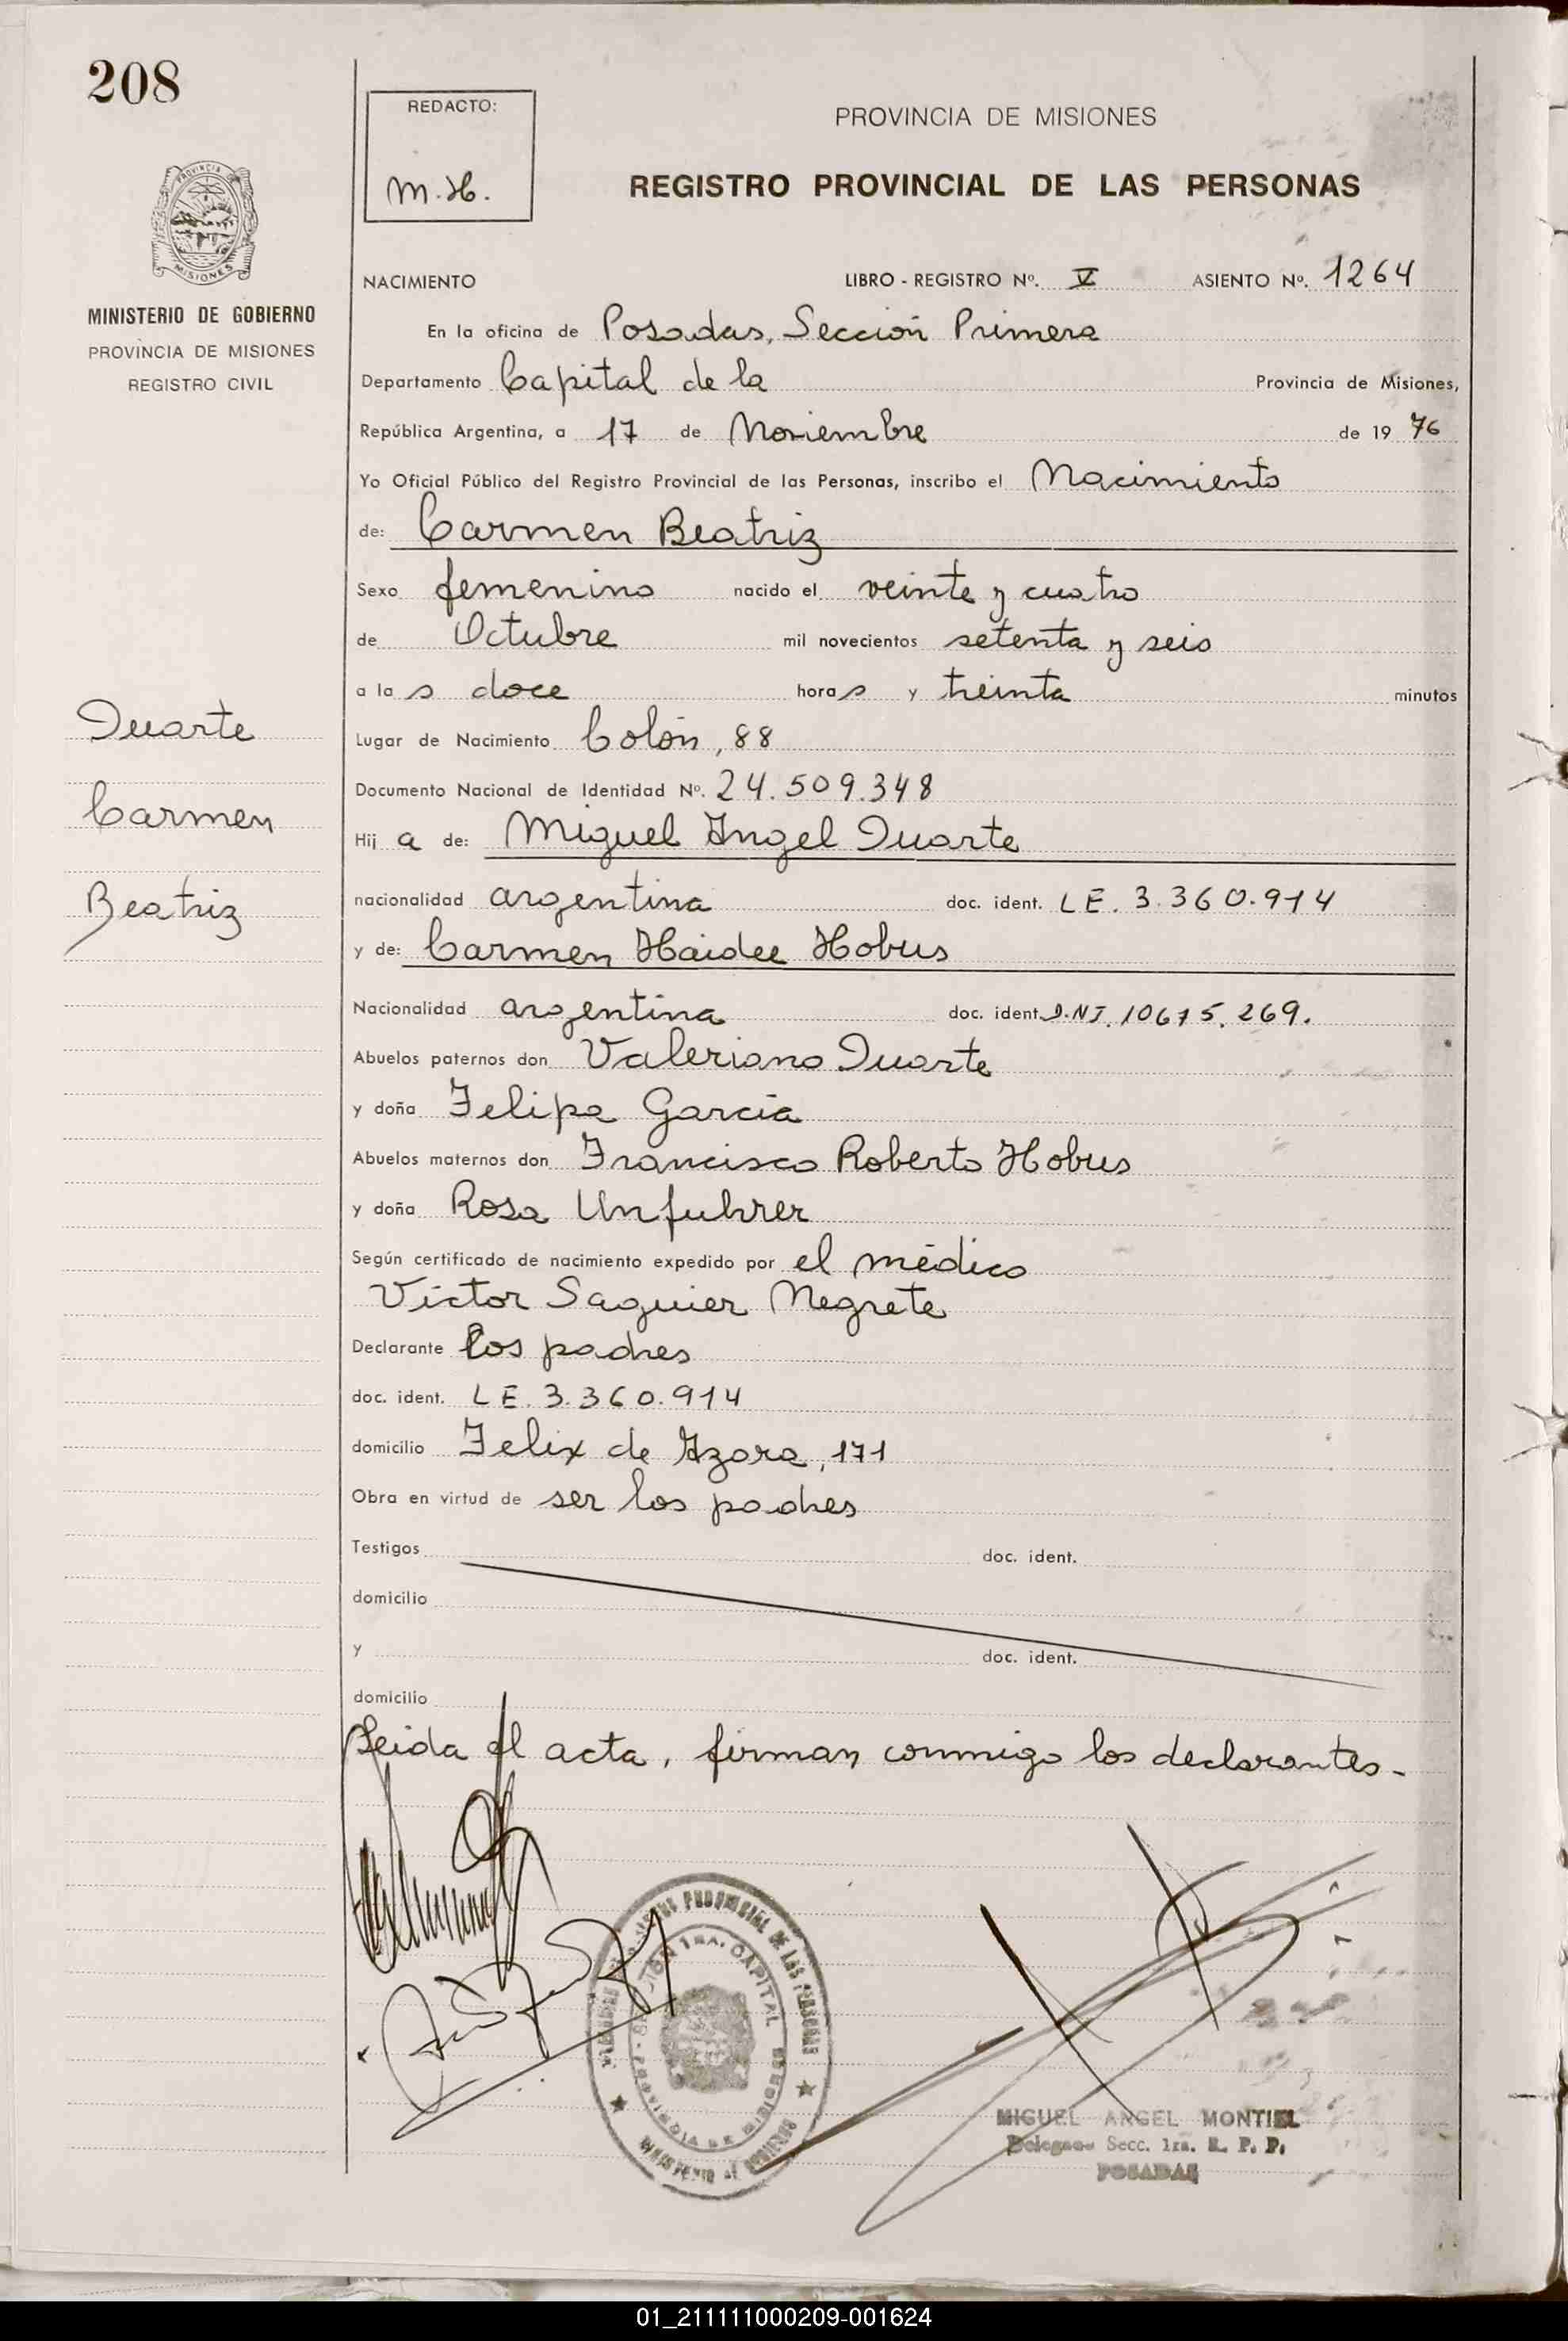 208
REDACTO:
M.H.
PROVINCIA DE MISIONES
REGISTRO PROVINCIAL DE LAS PERSONAS
MISIONES
MINISTERIO DE GOBIERNO
PROVINCIA DE MISIONES
REGISTRO CIVIL
NACIMIENTO LIBRO - REGISTRO Nº. V ASIENTO Nº. 1264
En la oficina de Posadas, Sección Primera
Departamento Capital de la Provincia de Misiones,
República Argentina, a 17 de Noviembre de 19 76
Yo Oficial Público del Registro Provincial de las Personas, inscribo el Nacimiento
de: Carmen Beatriz
Sexo femenino nacido el veinte y cuatro
de Octubre mil novecientos setenta y seis
a la s doce hora s y treinta minutos
Duarte
Carmen
Beatriz
Lugar de Nacimiento Colón, 88
Documento Nacional de Identidad Nº. 24.509.348
Hij a de: Miguel Angel Duarte
nacionalidad argentina doc. ident. LE. 3.360.914
y de: Carmen Haidee Hobus
Nacionalidad argentina doc. ident. D.N.I. 10675.269.
Abuelos paternos don Valeriano Duarte
y doña Felipa García
Abuelos maternos don Francisco Roberto Hobus
y doña Rosa Unfuhrer
Según certificado de nacimiento expedido por el médico
Víctor Saguier Negrete
Declarante los padres
doc. ident. LE. 3.360.914
domicilio Felix de Azara, 171
Obra en virtud de ser los padres
Testigos doc. ident.
domicilio
y doc. ident.
domicilio
Leida el acta, firman conmigo los declarantes.
PROVINCIAL DE LAS PERSONAS
1RA. CAPITAL
PROVINCIA DE MISIONES
MIGUEL ANGEL MONTIEL
Delegado Secc. 1ra. R. P. P.
POSADAS
01_211111000209-001624